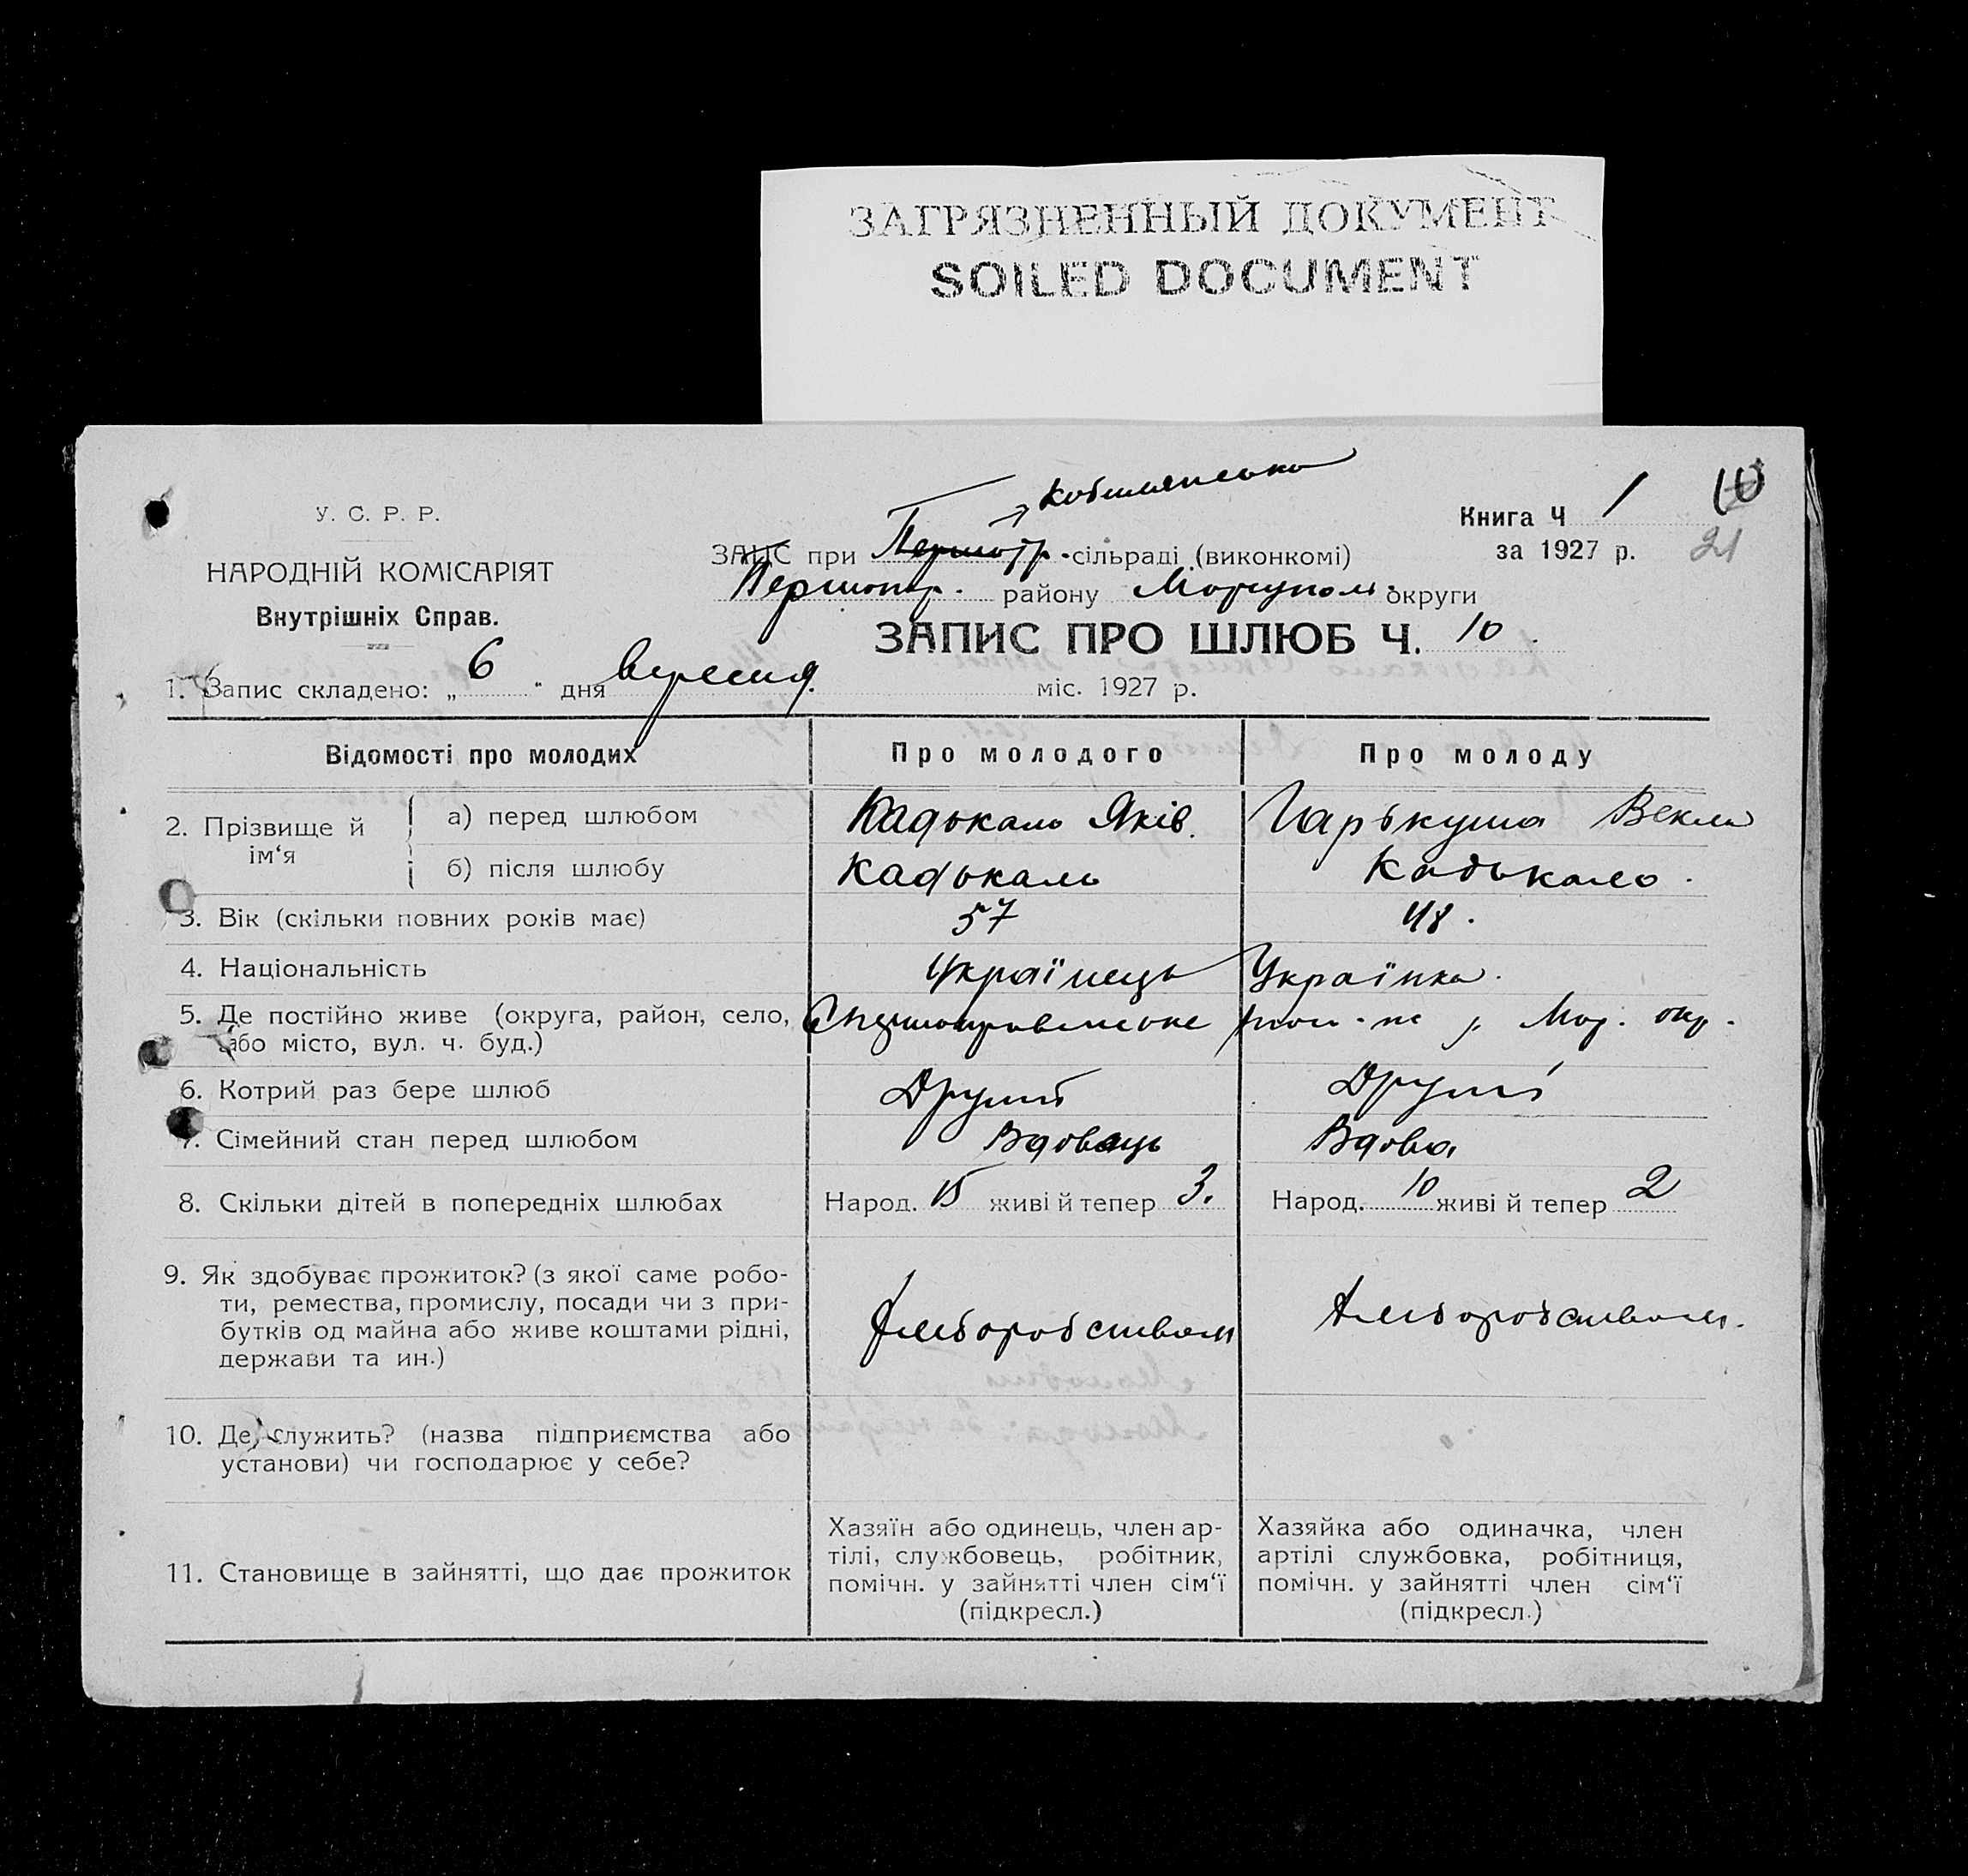 ЗАГРЯЗНЕННЫЙ ДОКУМЕНТ
SOILED DOCUMENT
У. С. Р. Р.
НАРОДНІЙ КОМІСАРІЯТ
Внутрішніх Справ.
ЗАПИС при Першотр. сільраді (виконкомі)
Першотр. району Маріуполь округи
Книга Ч 1
за 1927 р.
10
21
ЗАПИС ПРО ШЛЮБ Ч. 10
1. Запис складено: „ 6 “ дня вересня міс. 1927 р.
Відомості про молодих Про молодого Про молоду
2. Прізвище й ім‘я
а) перед шлюбом Кадькало Яків. Гарькуша Векла
б) після шлюбу Кадькало Кадькало.
3. Вік (скільки повних років має) 57 48.
4. Національність Українець Українка.
5. Де постійно живе (округа, район, село, або місто, вул. ч. буд.) р. Мар. окр.
6. Котрий раз бере шлюб Другий Другий
7. Сімейний стан перед шлюбом Вдовець Вдова
8. Скільки дітей в попередніх шлюбах Народ. 15 живі й тепер 3. Народ. 10 живі й тепер 2
9. Як здобуває прожиток? (з якої саме робо-
ти, ремества, промислу, посади чи з при-
бутків од майна або живе коштами рідні,
держави та ин.)
Хлеборобством Хлеборобством.
10. Де служить? (назва підприємства або
установи) чи господарює у себе?
11. Становище в зайнятті, що дає прожиток
Хазяїн або одинець, член ар-
тілі, службовець, робітник,
помічн. у зайнятті член сім‘ї
(підкресл.)
Хазяйка або одиначка, член
артілі службовка, робітниця,
помічн. у зайнятті член сім‘ї
(підкресл.)